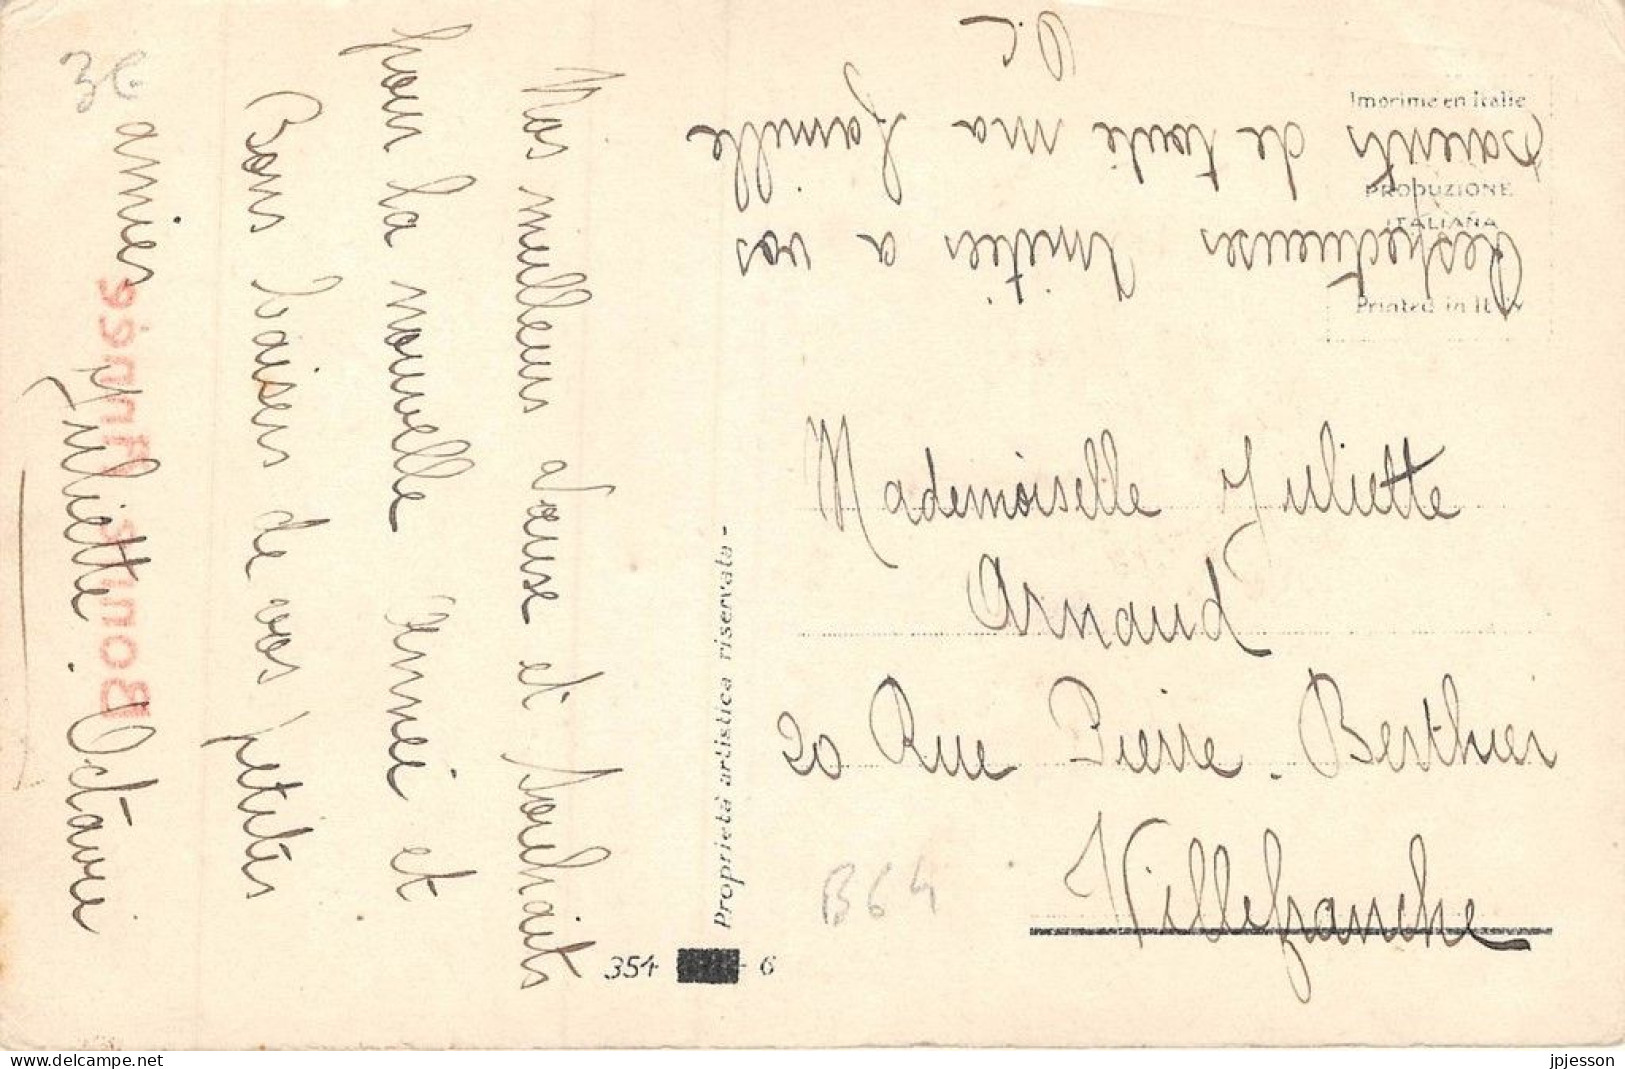 Nos meilleurs Voeuse et Souhaits
pour la nouvelle Année et
Bons baisers de vos petites
amies Juliette. Octavie
36
Bonne Année
Respectueuses Amitiés a vos
parents de toute ma famille
Imprime en Italie
PRODUZIONE
ITALIANA
Printed in Italy
Mademoiselle Juliette
Arnaud
20 Rue Pierre. Berthier
Villefranche
B64
Proprietà artistica riservata -
354 - 6
jpjesson
https://www.delcampe.net